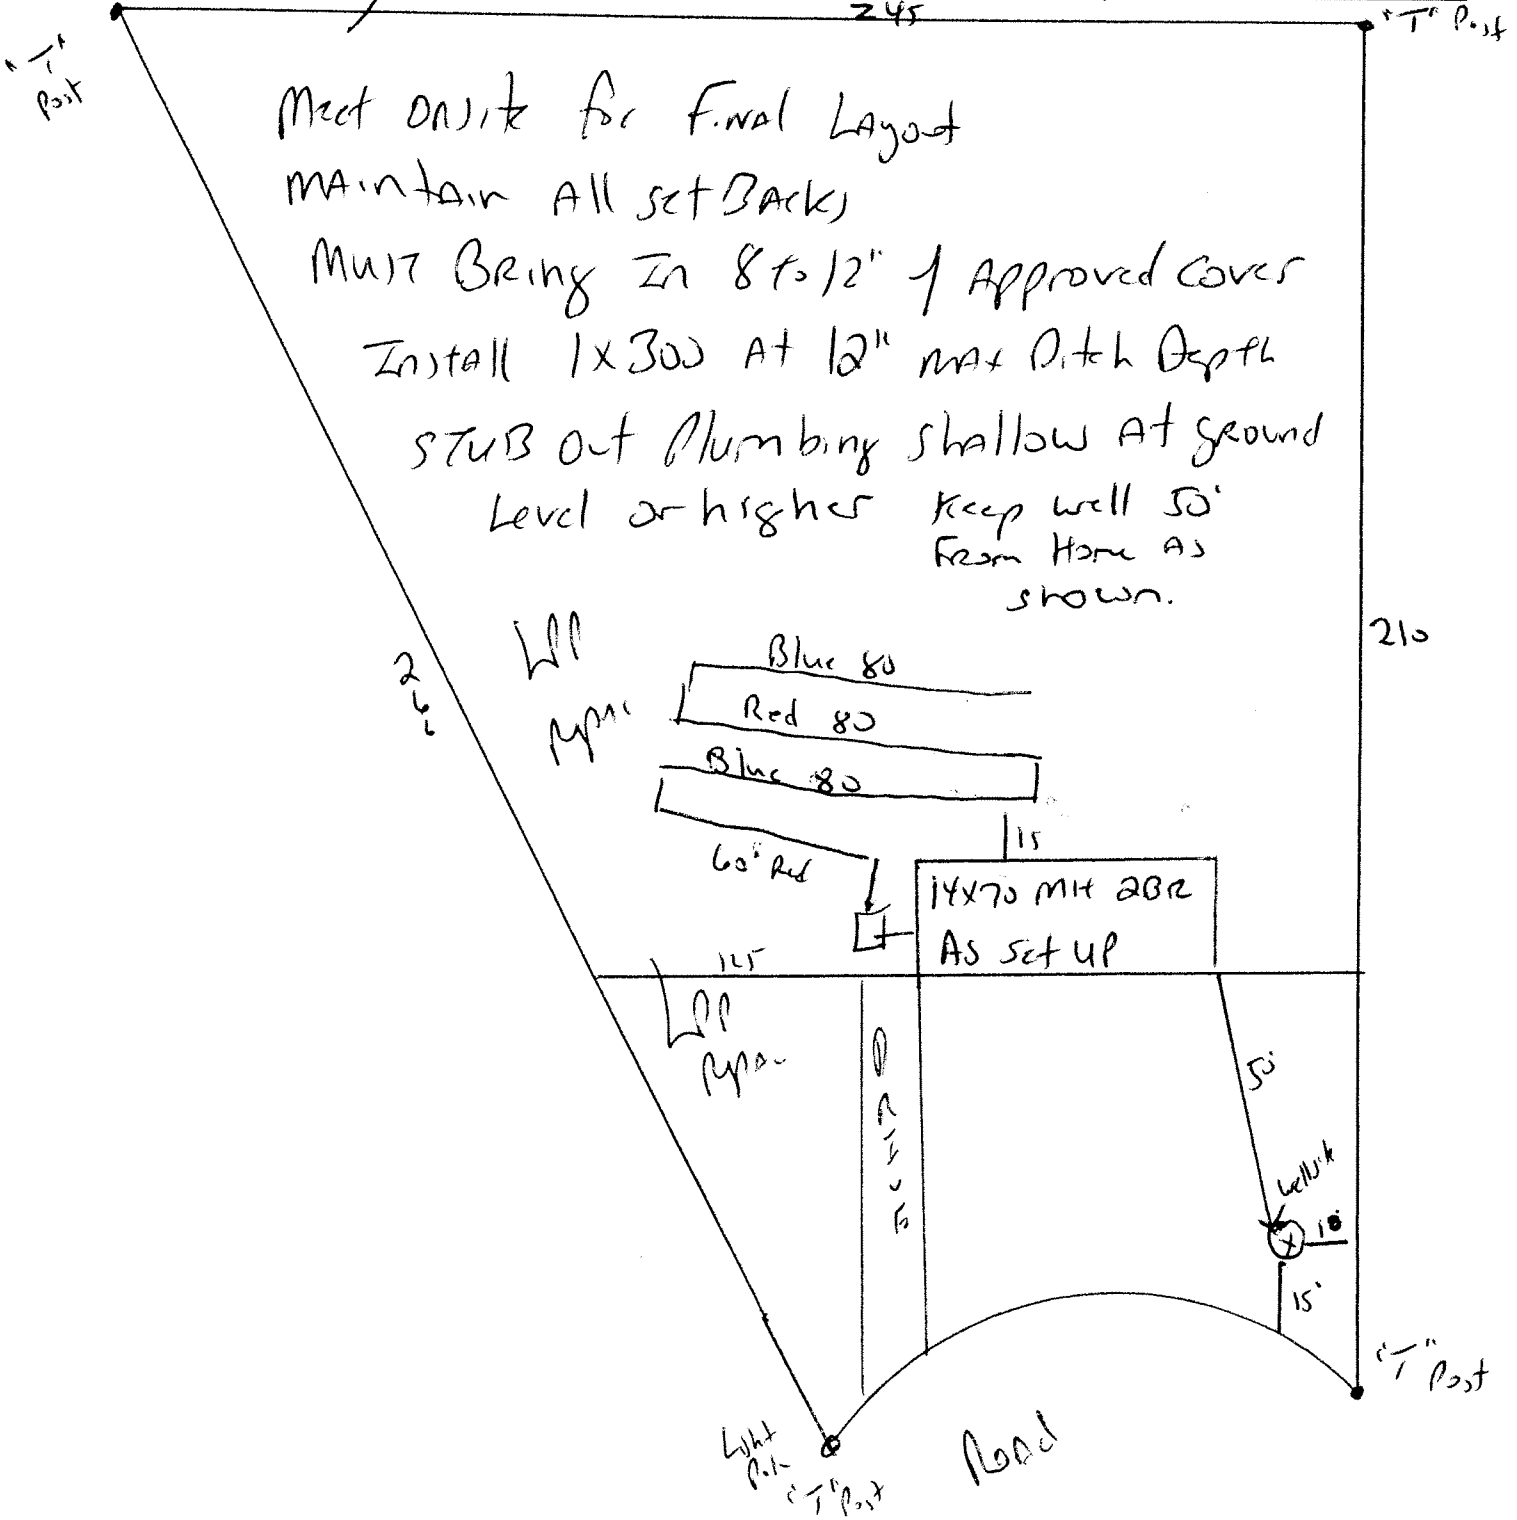 245
"T" Post
"T"
Post
Meet Onsite for Final Layout
Maintain All setBacks
Must Bring In 8 to 12" of Approved Cover
Install 1x300 At 12" max Ditch Depth
STUB Out Plumbing Shallow At ground
Level or higher
Keep well 50'
From Home As
shown.
210
LPP
Blue 80
Red 80
Blue 80
60' Red
15
14x70 MH 2BR
As Set UP
LPP
DRIVE
50'
Wellsite
10'
15'
"T" Post
Light
Pole
"T" Post
Road